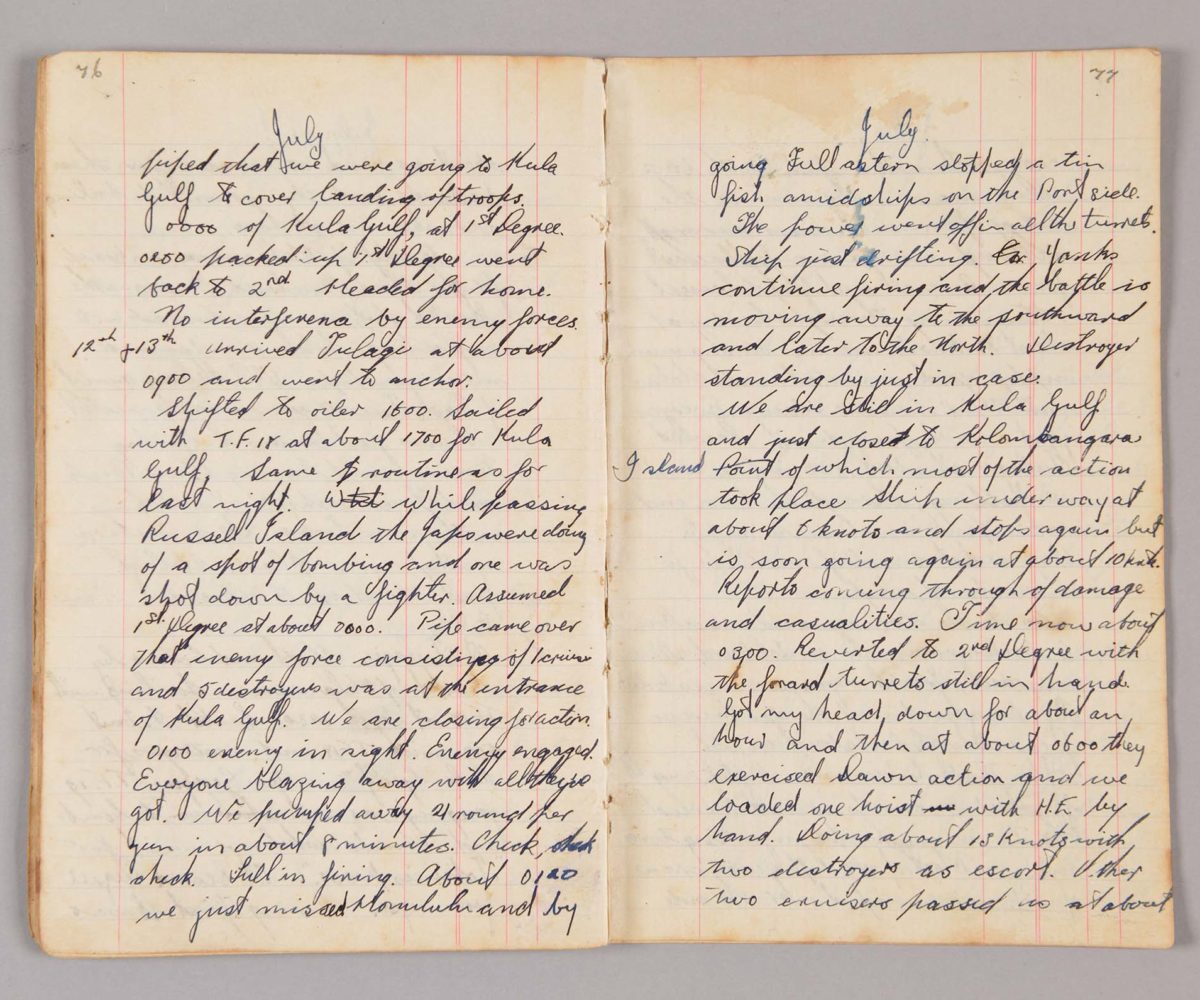 76
July
piped that we were going to Kula
Gulf to cover landing of troops.
0000 of Kula Gulf, at 1st Degree.
0200 packed up 1st Degree went
back to 2nd Headed for home.
No interference by enemy forces.
12th + 13th Arrived Tulagi at about
0900 and went to anchor.
Shifted to oiler 1500. Sailed
with T.F. 18 at about 1700 for Kula
Gulf, Same routine as for
last night. While passing
Russell Island the Japs were doing
of a spot of bombing and one was
shot down by a fighter. Assumed
1st Degree at about 0000. Pipe came over
that enemy force consisting of 1 cruiser
and 5 destroyers was at the entrance
of Kula Gulf. We are closing for action
0100 enemy in sight. Enemy engaged.
Everyone blazing away with all they've
got. We pumped away 21 round per
gun in about 8 minutes. Check, check
check. Lull in firing. About 0120
we just missed Honolulu and by
77
July
going Full astern stopped a tin
fish amidships on the Port side.
The power went off in all the turrets.
Ship just drifting. Yanks
continue firing and the battle is
moving away to the southward
and later to the North. Destroyer
standing by just in case.
We are still in Kula Gulf
and just closed to Kolombangara
Island Point of which most of the action
took place Ship under way at
about 6 knots and stops again but
is soon going again at about 10 knts.
Reports coming through of damage
and casualities. Time now about
0300. Reverted to 2nd Degree with
the forard turrets still in hand.
Got my head down for about an
hour and then at about 0600 they
exercised Dawn action and we
loaded one hoist with H.E. by
hand. Doing about 13 Knots with
two destroyers as escort. Other
two cruisers passed us at about